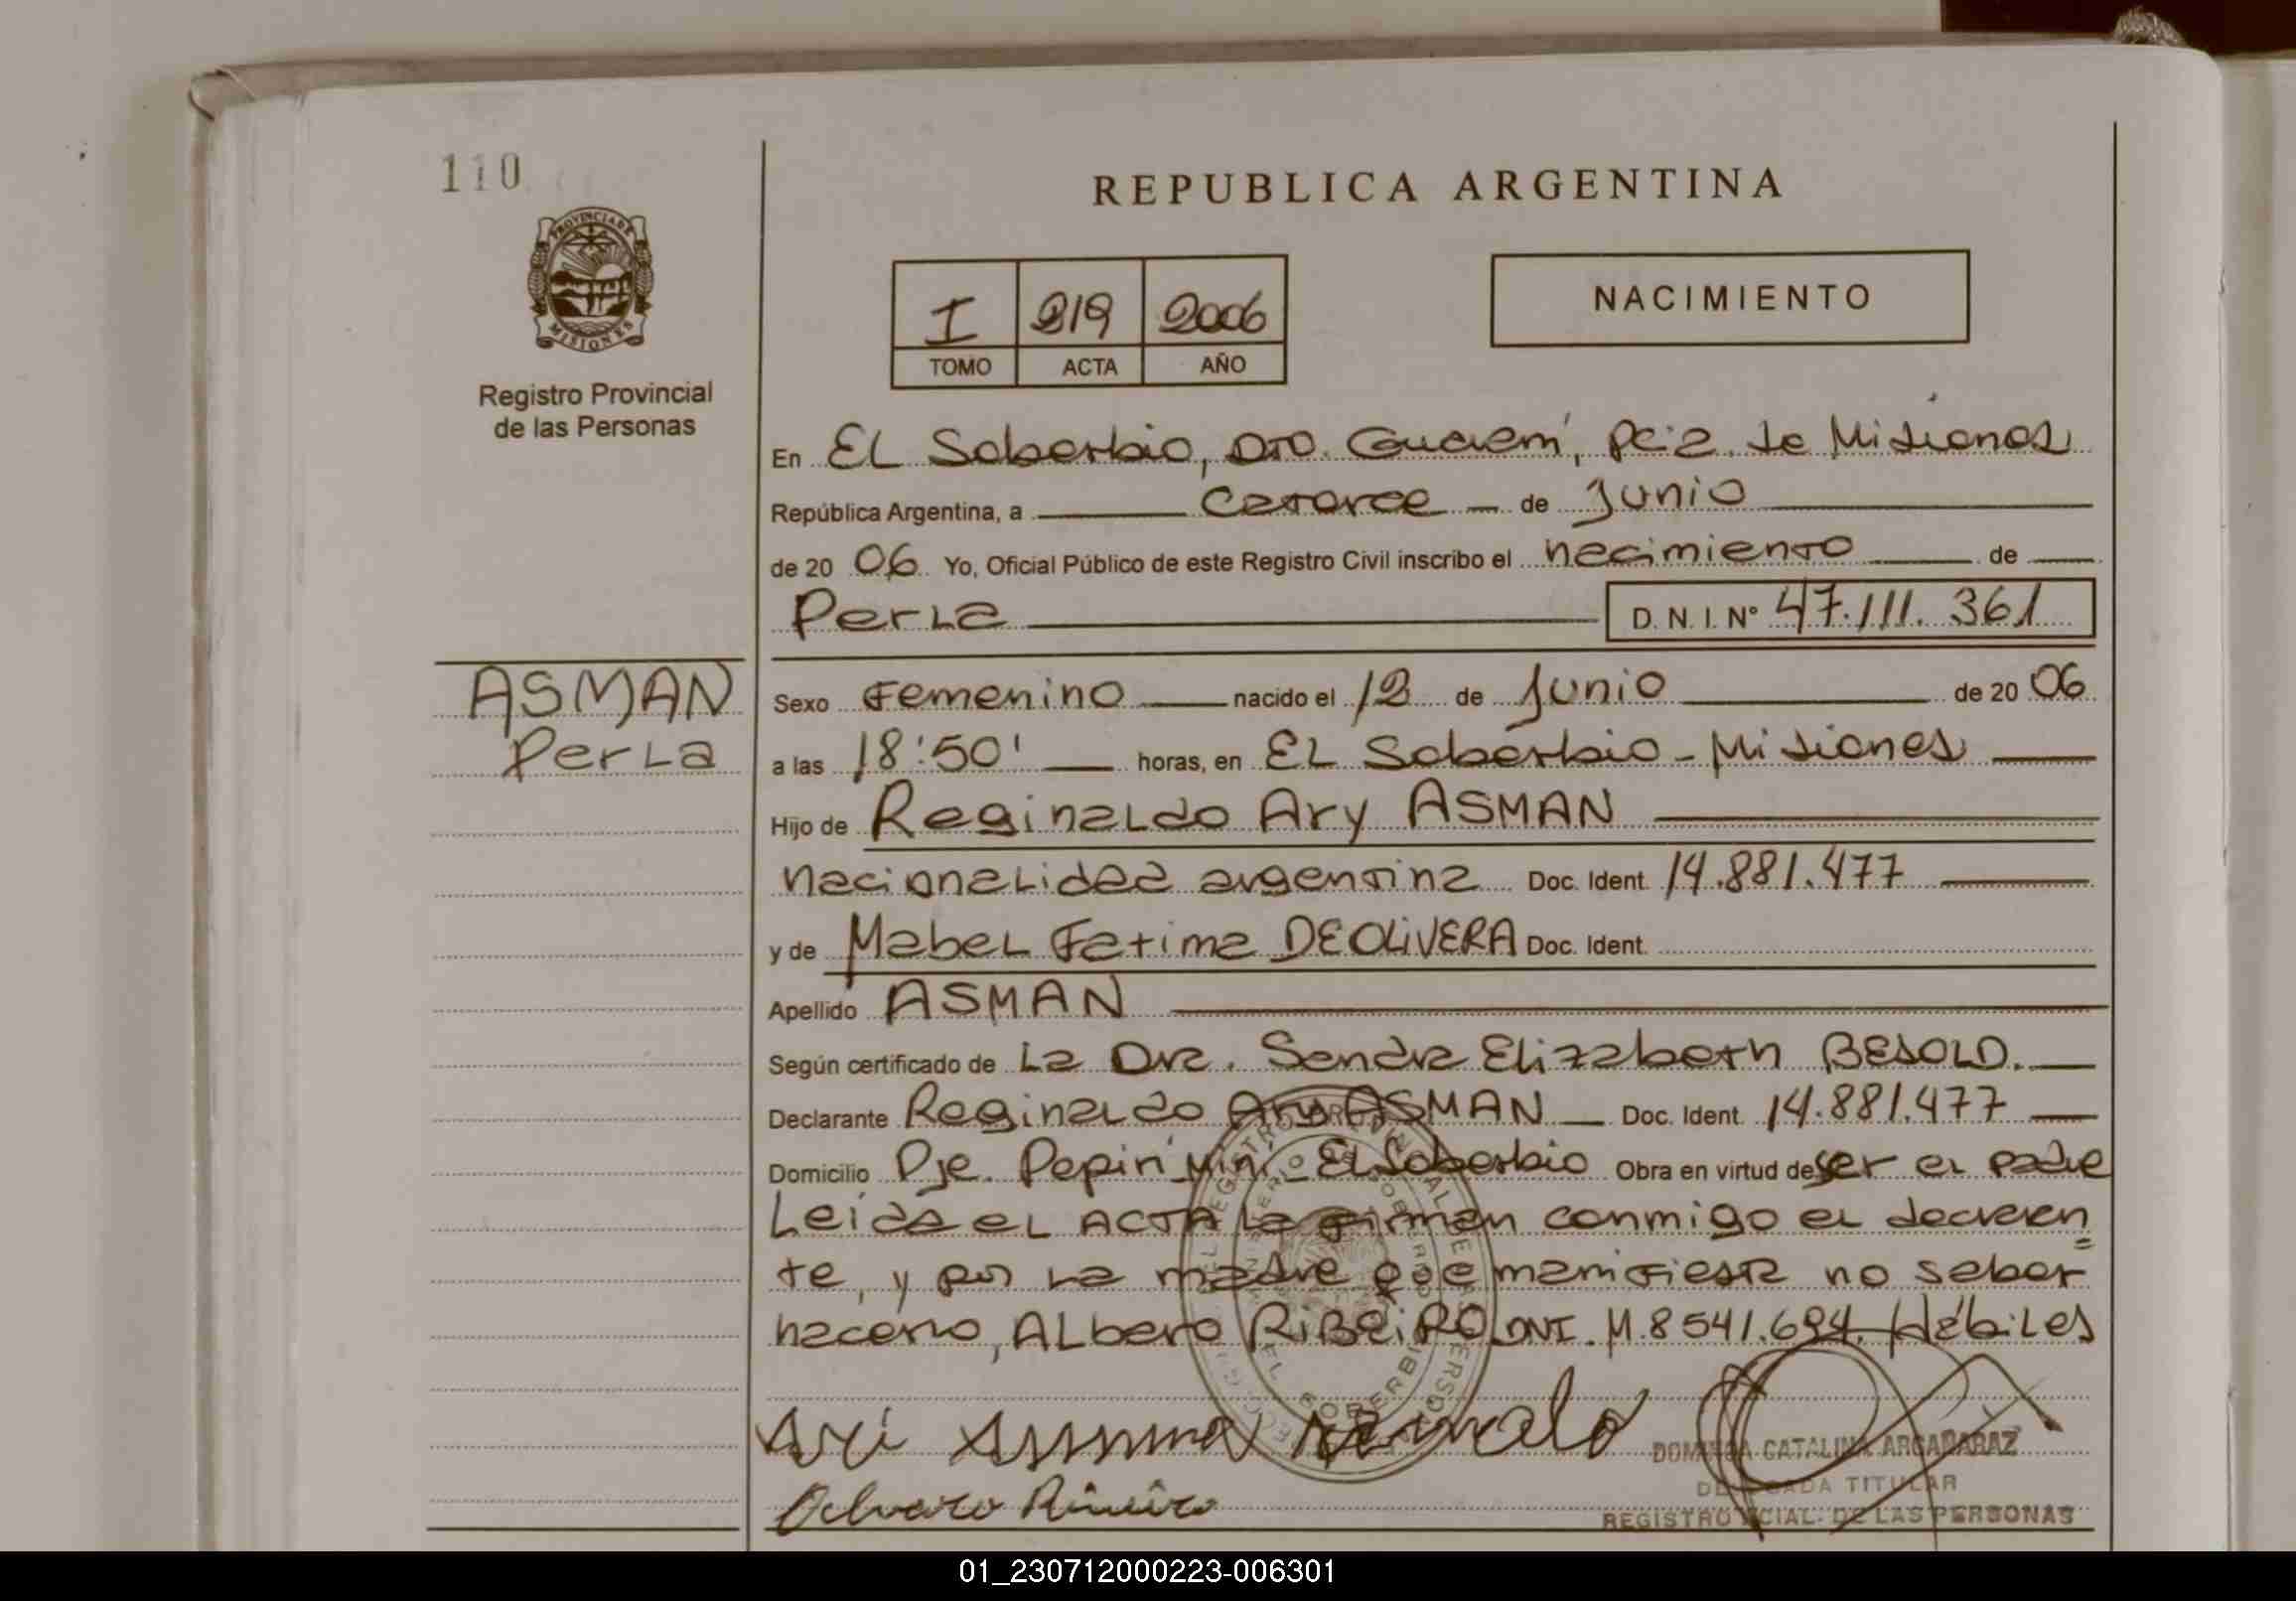 110
REPUBLICA ARGENTINA
PROVINCIA DE
MISIONES
Registro Provincial
de las Personas
I 219 2006
TOMO ACTA AÑO
NACIMIENTO
En EL Soberbio, Dto. Guaraní, Pcia. de Misiones
República Argentina, a Catorce de Junio
de 20 06 Yo, Oficial Público de este Registro Civil inscribo el nacimiento de
Perla D. N. I. N° 47.111.361
ASMAN
Perla
Sexo Femenino nacido el 12 de Junio de 20 06
a las 18:50' horas, en EL Soberbio - Misiones
Hijo de Reginaldo Ary ASMAN
nacionalidad argentina Doc. Ident. 14.881.477
y de Mabel Fatima DEOLiVERA Doc. Ident.
Apellido ASMAN
Según certificado de La Dra. Sandra Elizabeth BESOLD.
Declarante Reginaldo Ary ASMAN Doc. Ident. 14.881.477
Domicilio Pje. Pepirí Miní - El Soberbio Obra en virtud de ser el padre
Leida el ACTA la firman conmigo el declaran
te, y por la madre que manifiesta no saber
hacerlo, ALbaro RiBeiRO DNI. M. 8541.694. Hábiles
Ari
DOMINGA CATALINA ARGAÑARAZ
DELEGADA TITULAR
REGISTRO PCIAL. DE LAS PERSONAS
01_230712000223-006301